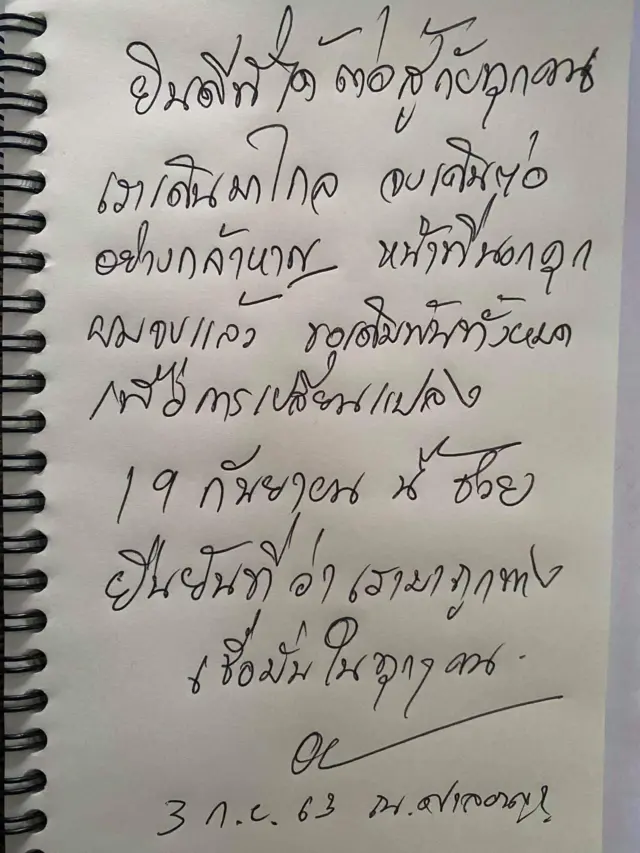 ยินดีที่ได้ต่อสู้กับทุกคน
เราเดินมาไกล จงเดินต่อ
อย่างกล้าหาญ หน้าที่นอกคุก
ผมจบแล้ว ขอเดิมพันทั้งหมด
เพื่อการเปลี่ยนแปลง
19 กันยายน นี้ ช่วย
ยืนยันที ว่า เรามาถูกทาง
เชื่อมั่นในทุกๆ คน
3 ก.ย. 63 ณ.ศาลอาญา